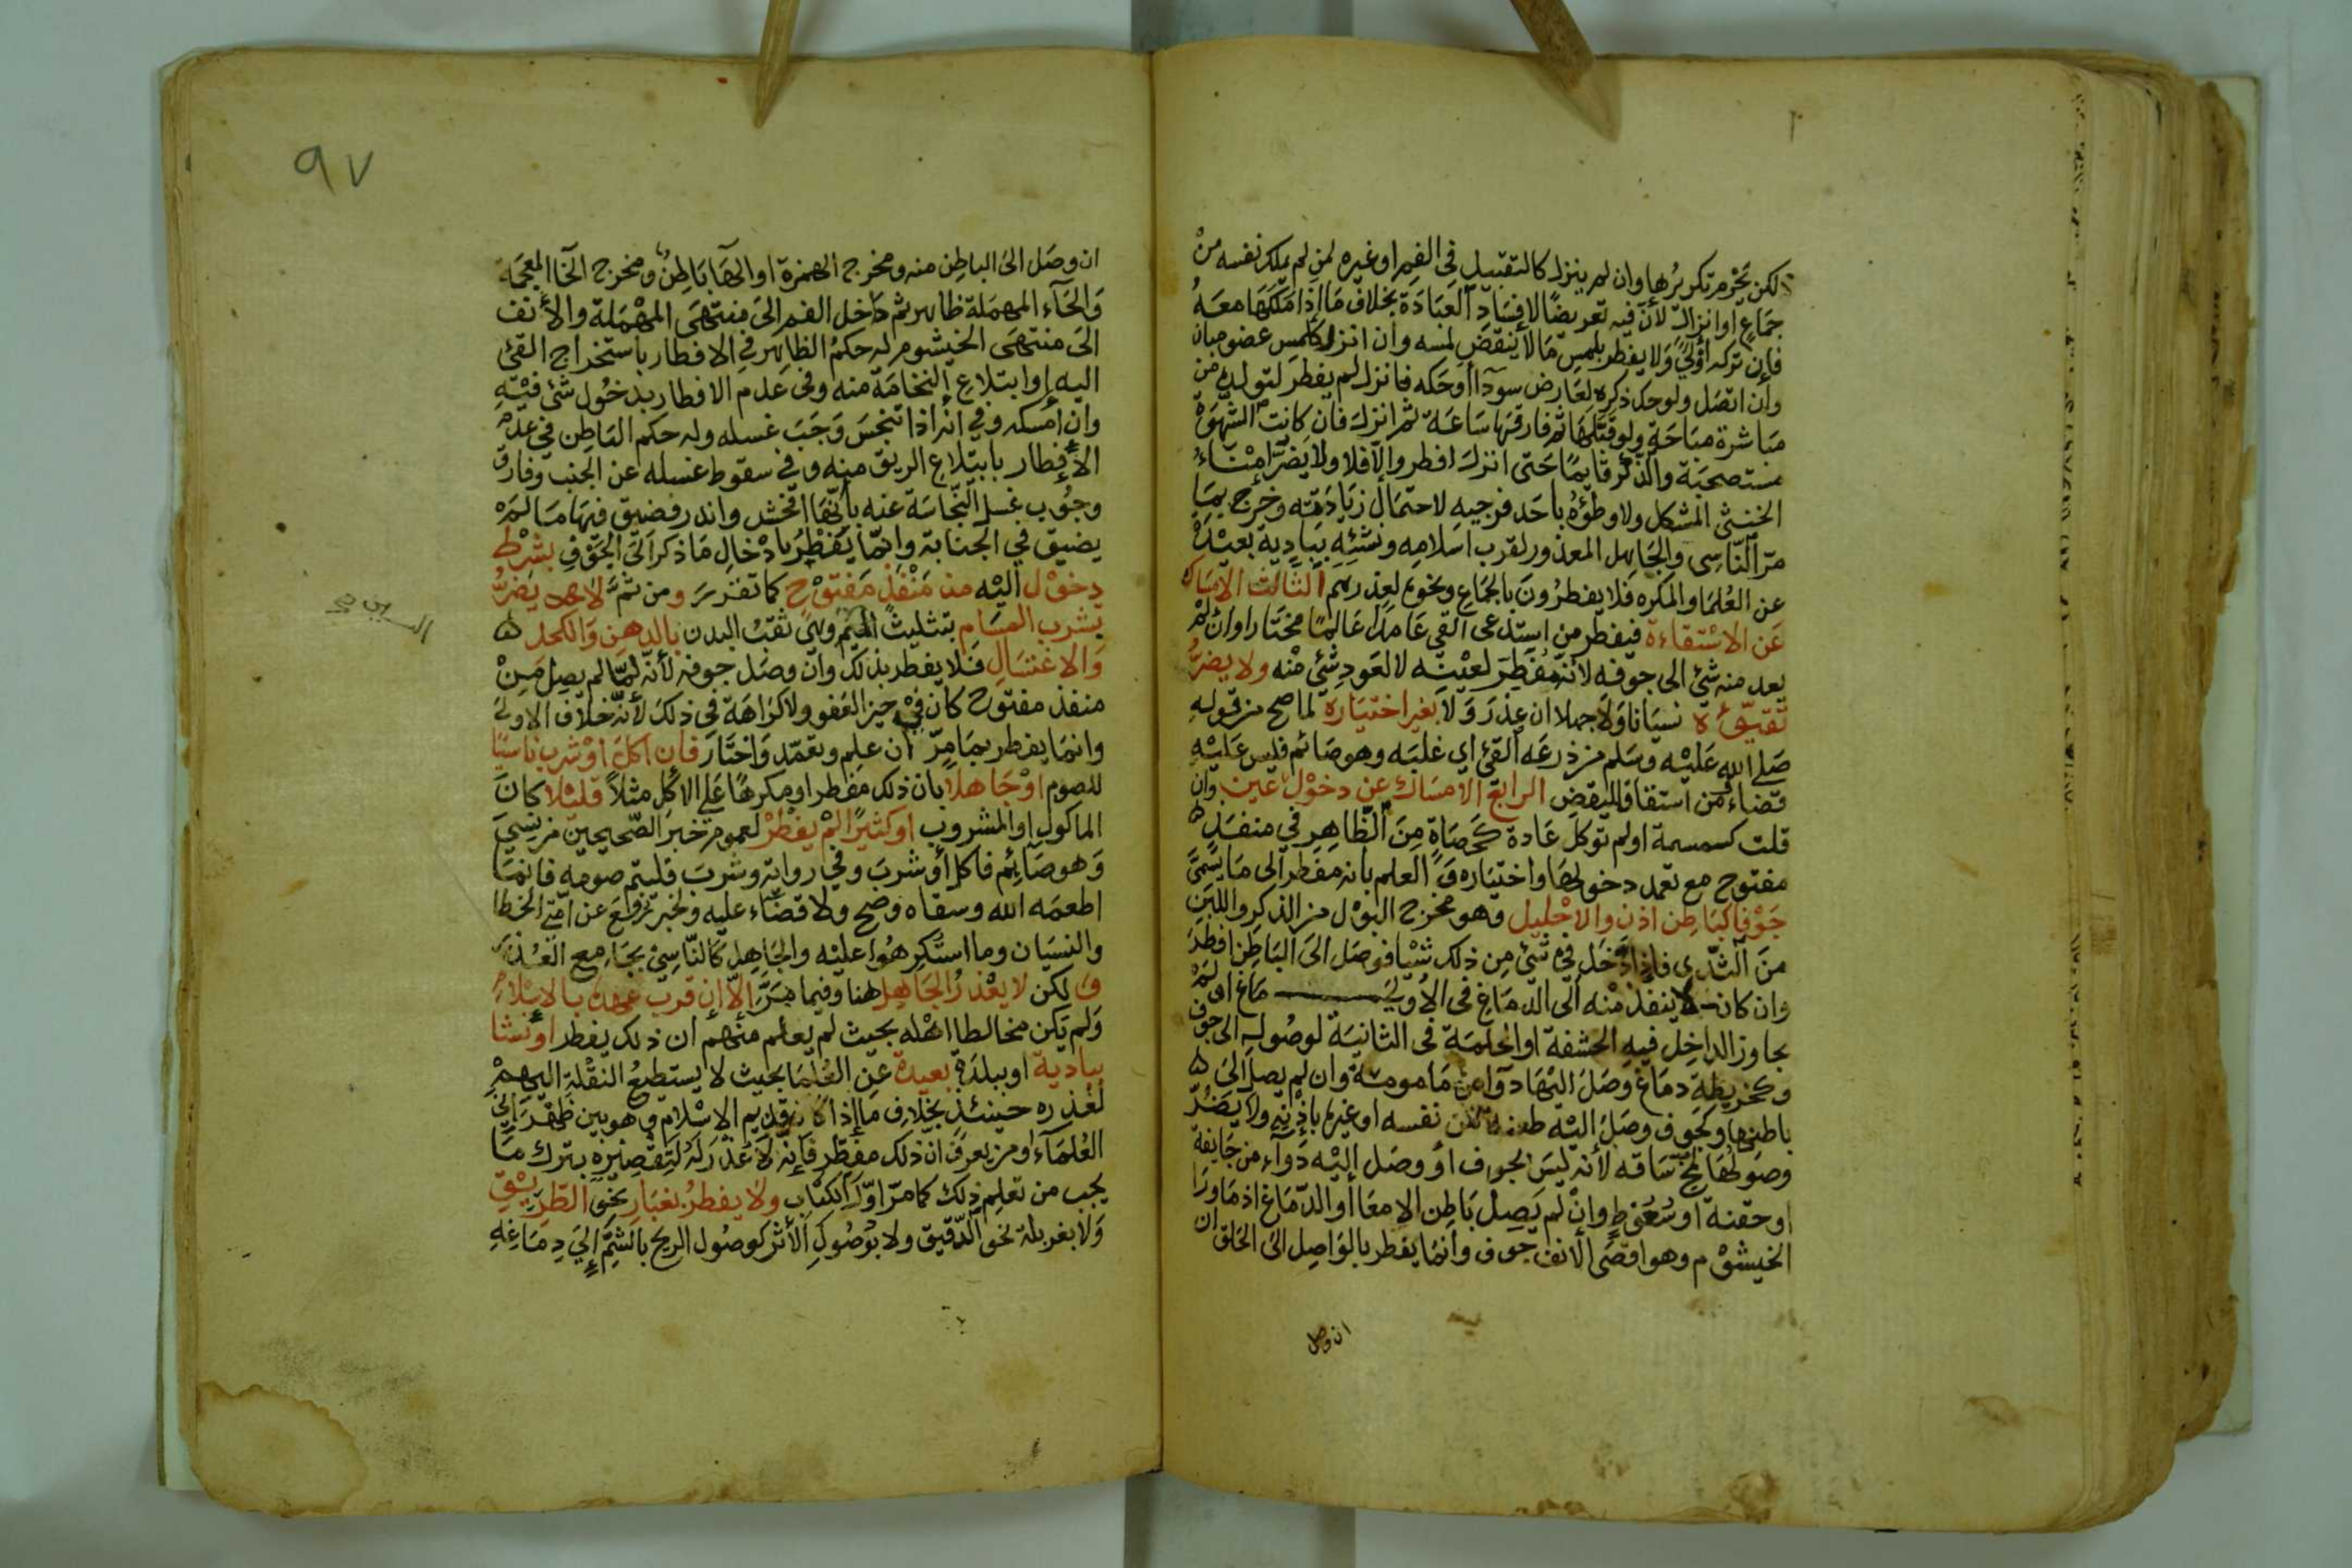 لكن يحرم تكريرها وان لم ينزل كالتقبيل في الفم او غيره لمن لم يملك نفسه من
جماع او انزال لأن فيه تعريضا لافساد العبادة بخلاف ما اذا ملكها معه
فإن تركه أولى ولا يفطر بلمس ما لا ينقض لمسه وان انزل كلمس عضو مبان
وان اتصل ولو حك ذكره لعارض سودآ أو حكه فانزل لم يفطر لتولده من
مباشرة مباحة ولو قبلها ثم فارقها ساعة ثم انزل فان كانت الشهوة
مستصحبة والذكر قايما حتى انزل افطر والا فلا ولا يضر امناء
الخنثى المشكل ولا وطؤه باحد فرجيه لاحتمال زيادته وخرج بما
مر الناسي والجاهل المعذور لقرب اسلامه ونشئه ببادية بعيدة
عن العلما والمكره فلا يفطرون بالجماع ونحوه لعذرهم الثالث الامساك
عن الاستقاءة فيفطر من استدعى القي عامدا عالما مختارا وان لم
يعد منه شئ الى جوفه لانه مفطر لعينه لا لعود شئ منه ولا يضر
تقيؤه نسيانا ولا جهلا ان عذر ولا بغير اختياره لما صح من قوله
صلى الله عليه وسلم من ذرعه القئ اي غلبه وهو صائم فليس عليه
قضاء ومن استقا فليقض الرابع الامساك عن دخول عين وان
قلت كسمسمة او لم توكل عادة كحصاة من الظاهر في منفذ
مفتوح مع تعمد دخولها واختياره والعلم بانه مفطر الى ما يسمى
جوفا كباطن اذن والاحليل وهو مخرج البول من الذكر واللبن
من الثدي فاذا دخل في شئ من ذلك شيا فوصل الى الباطن افطر
وان كان لا ينفذ منه الى الدماغ في الاولى ماغ او لم
يجاوز الداخل فيه الحشفة او الحلمة في الثانية لوصوله الى جوف
وكخريطة دماغ وصل اليها دوآ من مامومة وان لم يصل الى
باطنها وكجوف وصل اليه طعنة من نفسه او غيره باذنه ولا يضر
وصولها لمخ ساقه لأنه ليس بجوف أو وصل اليه دوآء من جايفة
او حقنة او سعوط وان لم يصل باطن الامعا أو الدماغ اذ ما ورا
الخيشوم وهو اقصى الانف جوف وانما يفطر بالواصل الى الحلق ان
ان وصل
٩٧
ان وصل الى الباطن منه ومخرج الهمزة او الها باطن ومخرج الخا المعجمة
والحآء المهملة ظاهر ثم داخل الفم الى منتهى المهملة والأنف
الى منتهى الخيشوم له حكم الظاهر في الافطار باستخراج القئ
اليه او ابتلاع النخامة منه وفي عدم الافطار بدخول شئ فيه
وان أمسكه وفي انه اذا تنجس وجب غسله وله حكم الباطن في عدم
الأفطار بابتلاع الريق منه وفي سقوط غسله عن الجنب وفارق
وجوب غسل النجاسة عنه بأنها افحش واندر فضيق فيها ما لم
يضيق في الجنابة وانما يفطر بادخال ما ذكر الى الجوف بشرط
دخول اليه من منفذ مفتوح كما تقرر ومن ثم لا يضر
بشرب المسام بتثليث الميم وهي ثقب البدن بالدهن والكحل
والاغتسال فلا يفطر بذلك وان وصل جوفه لأنه لما لم يصل من
منفذ مفتوح كان في حيز العفو ولا كراهة في ذلك لأنه خلاف الاولى
وانما يفطر بما مر ان علم وتعمد واختار فان اكل او شرب ناسيا
للصوم او جاهلا بان ذلك مفطر او مكرها على الاكل مثلا قليلا كان
الماكول او المشروب او كثيرا لم يفطر لعموم خبر الصحيحين من نسي
وهو صآئم فاكل أو شرب وفي رواية وشرب فليتم صومه فانما
اطعمه الله وسقاه وصح ولا قضاء عليه ولخبر رفع عن امتي الخطا
والنسيان وما استكرهوا عليه والجاهل كالناسي بجامع العذر
و لكن لا يعذر الجاهل هنا وفيما مر الا إن قرب عهده بالاسلام
ولم يكن مخالطا اهله بحيث لم يعلم منهم ان ذلك يفطر او نشا
ببادية او ببلدة بعيدة عن العلما بحيث لا يستطيع النقلة اليهم
لعذره حينئذ بخلاف ما اذا كان قديم الاسلام وهو بين ظهرآني
العلمآء او من يعرف ان ذلك مفطر فإنه لا عذر له لتقصيره بترك ما
يجب من تعلم ذلك كما مر اول الكتاب ولا يفطر بغبار نحو الطريق
ولا بغربلة نحو الدقيق ولا بوصول الأثر كوصول الريح بالشم إلى دماغه